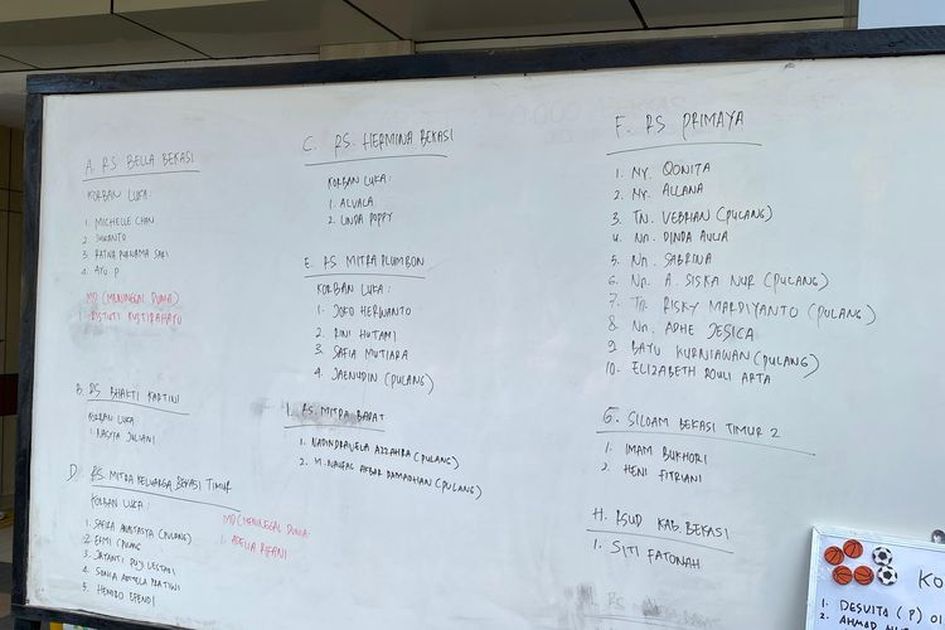 A. RS BELLA BEKASI
KORBAN LUKA:
1. MICHELLE CHAN
2. SUWANTO
3. RATNA PURNAMA SARI
4. AYU P
MD (MENINGGAL DUNIA)
1.
B. RS BHAKTI KARTINI
KORBAN LUKA
1. NASYA JULIANI
D. RS. MITRA KELUARGA BEKASI TIMUR
KORBAN LUKA:
1. SAFIRA ANASTASYA (PULANG)
2. ERMI (PULANG
3. JAYANTI PUJI LESTARI
4. SONIA PRATIWI
5. HENDRO EFENDI
MD (MENINGGAL DUNIA:
1. ADELIA RIFANI
C. RS. HERMINA BEKASI
KORBAN LUKA:
1. ALVALA
2. LINDA POPPY
E. RS MITRA PLUMBON
KORBAN LUKA:
1. JOKO HERWANTO
2. RINI HUTAMI
3. SAFIA MUTIARA
4. JAENUDIN (PULANG)
I. RS. MITRA BARAT
1. AZZAHRA (PULANG)
2. M. NAUFAL AKBAR RAMADHAN (PULANG)
F. RS PRIMAYA
1. NY. QONITA
2. NY. ALLANA
3. TN. VEBRIAN (PULANG)
4. NN. DINDA AULIA
5. NN. SABRINA
6. NN. A. SISKA NUR (PULANG)
7. TN. RISKY MARDIYANTO (PULANG)
8. NN. ADHE JESICA
9. BAYU KURNIAWAN (PULANG)
10. ELIZABETH ROULI ARTA
G. SILOAM BEKASI TIMUR 2
1. IMAM BUKHORI
2. HENI FITRIANI
H. RSUD KAB. BEKASI
1. SITI FATONAH
KO
1. DESVITA (P) 01
2. AHMAD